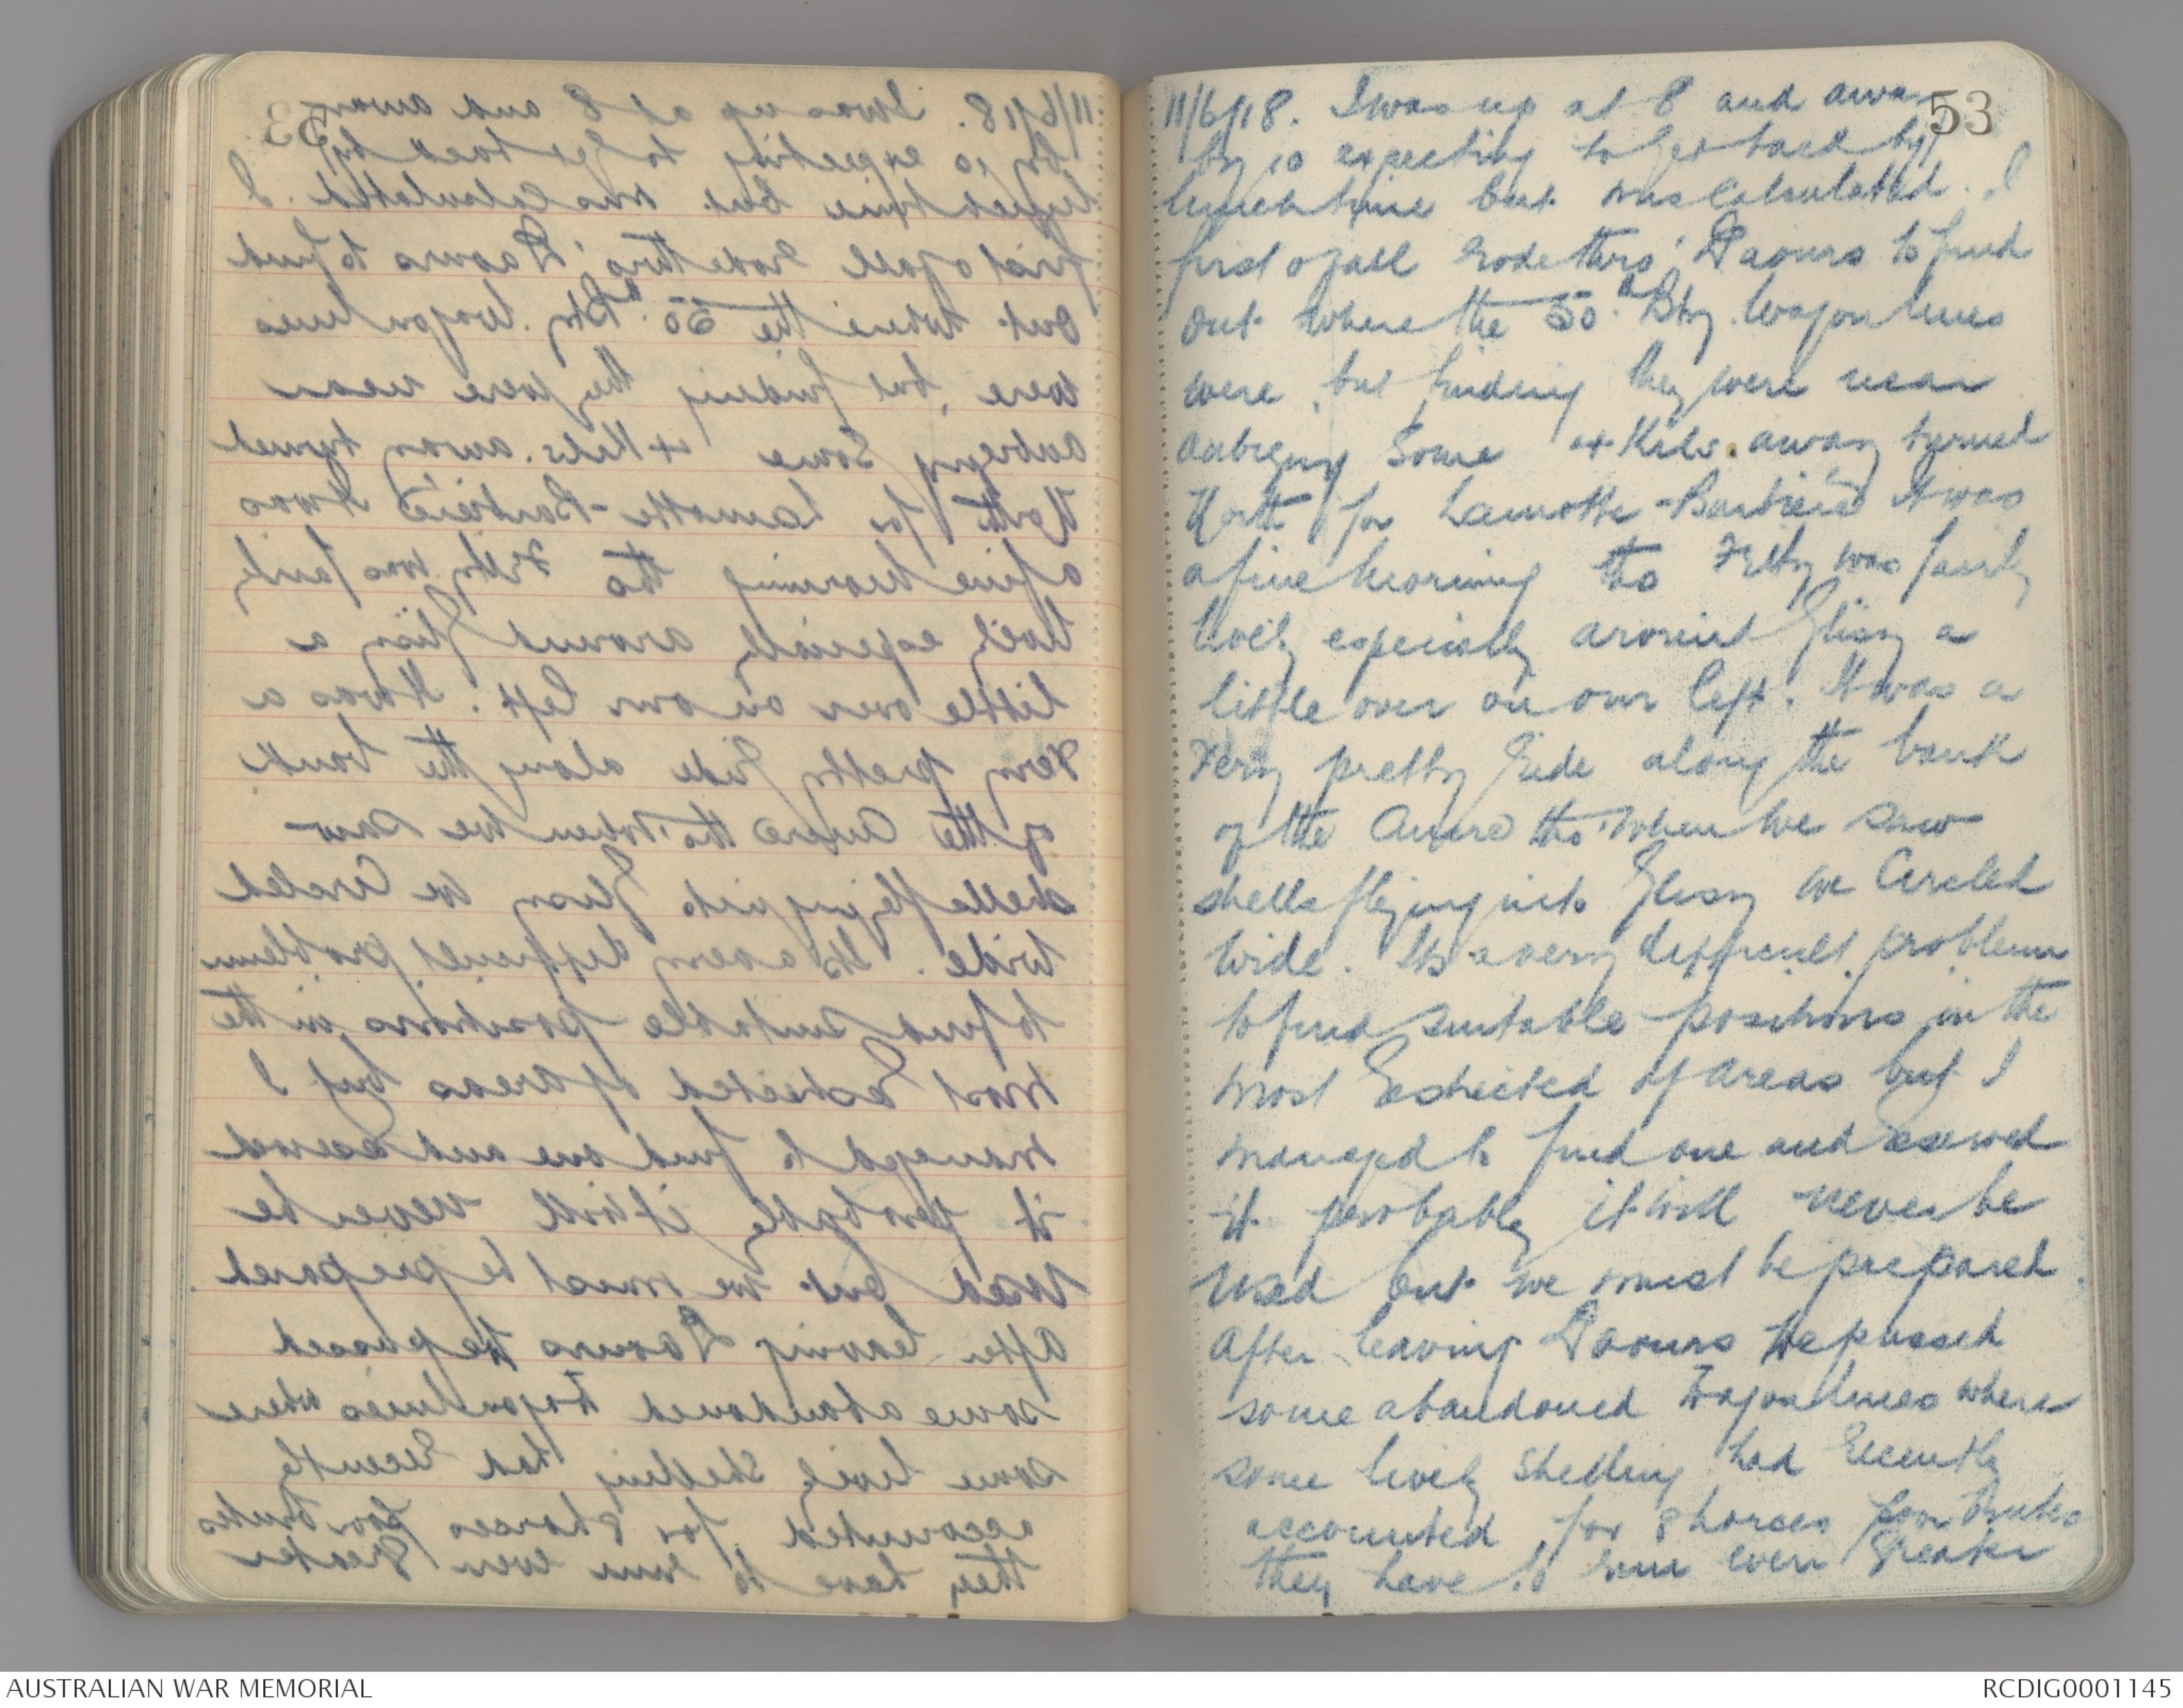 53
11/6/18. I was up at 8 and away
by 10 expecting to get back by
lunch time but miscalculated. I
first of all rode thro' Daours to find
out where the 50th Bty. Wagon lines
were, but finding they were near
Aubigny some 4 Kils. away turned
North for Lamotte-Barbière It was
a fine morning tho Fritz was fairly
lively especially around Glisy a
little over on our left. It was a
very pretty ride along the bank
of the Ancre tho' when we saw
shells flying into Glisy we circled
wide. Its a very difficult problem
to find suitable positions in the
most restricted of areas but I
managed to find one and reserved
it probably it will never be
used but we must be prepared.
After leaving Daours we passed
some abandoned wagon lines where
some lively shelling had recently
accounted for 8 horses poor brutes
they have to run even greater
AUSTRALIAN WAR MEMORIAL
RCDIG0001145